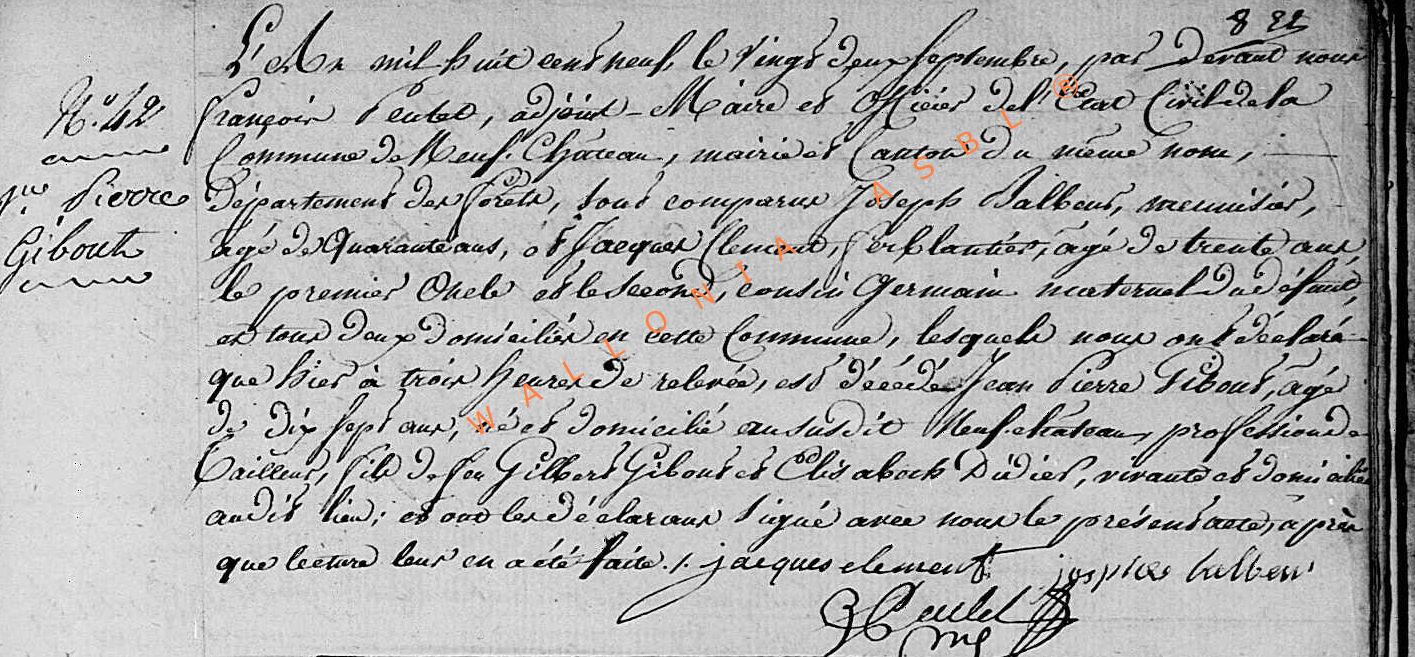 8 22
L'An mil huit cent neuf, le vingt deux septembre, par devant nous
N.° 42
François Peutet, adjoint-Maire et officier de l'Etat Civil de la
Commune de Neuf-Château, mairie et Canton du même nom,
Jn. Pierre
Département des forêts, sont comparus Joseph Balbeur, menuisier,
Gibout
agé de Quarante ans, et Jacques Clement, ferblantier, âgé de trente ans
le premier Oncle et le second, cousin Germain maternel du défunt,
et tous deux domiciliés en cette Commune, lesquels nous ont déclaré
que hier à trois heures de relevée, est décédé Jean Pierre Gibout, agé
de dix sept ans, né et domicilié au susdit Neufchateau, profession de
Tailleur, fils de feu Gilbert Gibout et Elisabeth Didier, vivante et domiciliée
audit lieu; et ont les déclarans signé avec nous le présent acte, après
que lecture leur en a été faite ./. jacques clement joseph balbeur
WALLONIA ASBL ®